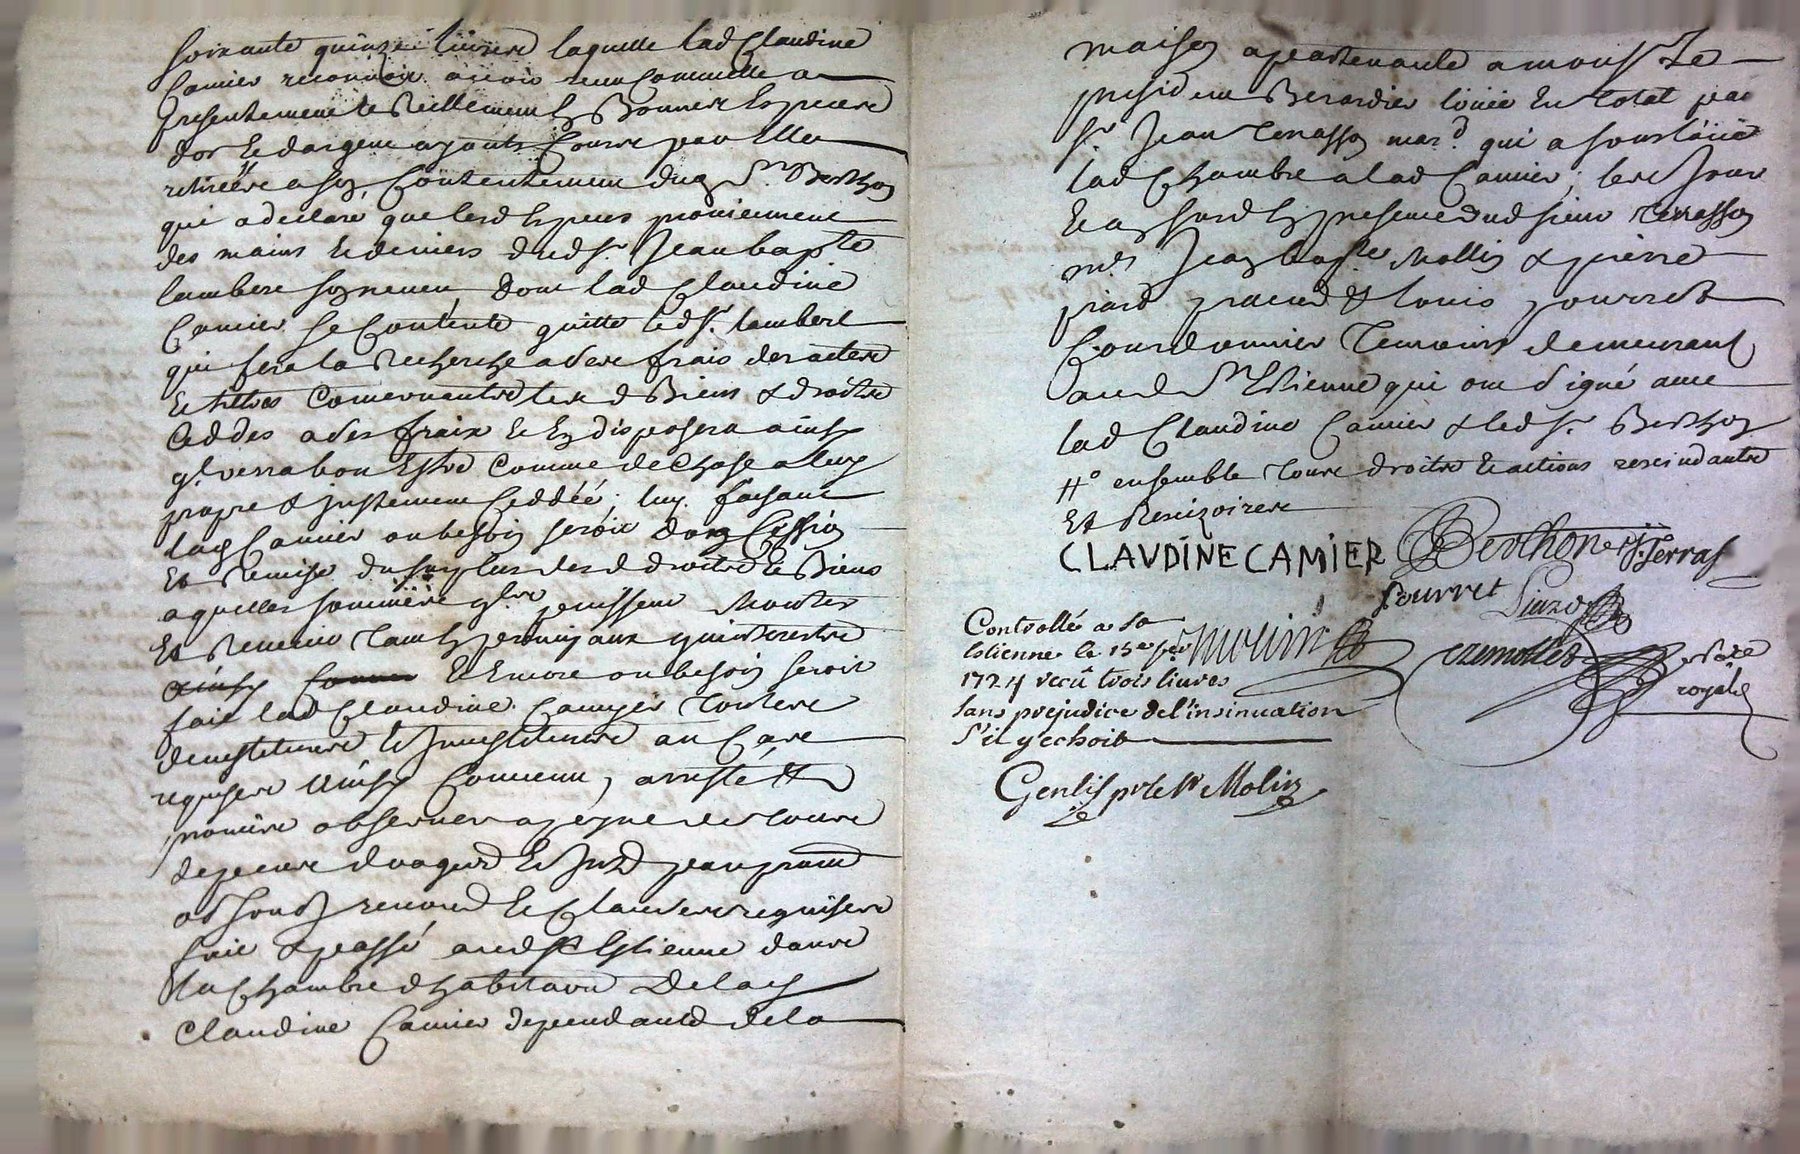 soixante quinze livres laquelle lad Claudine
Camier reconnoit avoir receu Comme elle a
presentement et reellement en Bonnes Especes
dor et dargent ayants Cours par elle
retirées a son Contentement dud Sr Berthon
qui a declaré que lesd Especes proviennent
des mains et deniers dud sr Jean bapte
lambert son neveu, dont lad Claudine
Camier se Contente quitte led sr lambert
qui fera la recherche a ses frais des actes
et titres Concernants lesd Biens & droits
Ceddes a ses fraix et En disposera ainsy
ql verra bon Estre Comme de chose a luy
propre & justement Ceddéé; luy faisant
lad Camier au besoin seroit don Cession
Et Remise du surplus desd droits et Biens
a quelles sommes qls puissent Monter
Et Revenir
ainsy et Encore au besoin seroit
fait lad Claudine Camier toutes
devestitures et Investitures au Cas
requises Ainsy Convenu, arresté &
promis observer a peyne de tous
depens
renoncé Et Clauses requises
fait & passé aud St Estienne dans
la Chambre dhabitation De lad
Claudine Camier dependante de la
maison apartenante a monsr Le
president Berardier louée En total par
sr Jean Terrasson mard qui a souslouée
lad Chambre a lad Camier; les Jour
et an susd En presence dud sieur Terrasson
Jean bapte Mollin & pierre
& louis pourret
Cordonnier Temoins demeurant
aud St Estienne qui ont signé avec
lad Claudine Camier & led sr Berthon
# ensemble tous droits et actions rescindants
Et Rescizoires
CLAVDINE CAMIER Berthon J. Terrasson
Pourret
Molin
Controllé a St
Estienne le 15e
1724 receû trois livres
sans prejudice de l'insinuation
s'il y echoit
royal
Gentis pr le sr Molin